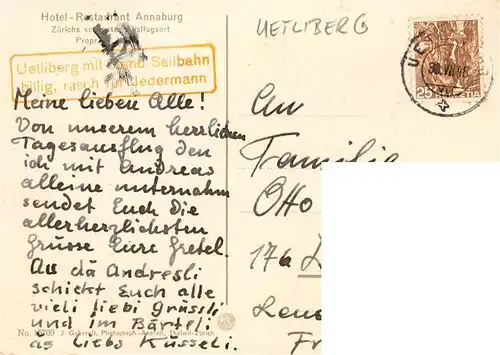 Hotel-Restaurant Annaburg
Zürichs
Uetliberg mit Seilbahn
billig, rasch für Jedermann
UETLIBERG
25
HELVETIA
Meine lieben Alle!
Von unserem herrlichen
Tagesausflug den
ich mit Andreas
alleine unternahm
sendet Euch die
allerherzlichsten
Grüsse Eure Gretel.
Au dä Andresli
schickt Euch alle
vieli liebi Grüssli
und im Bärteli
äs liebs Küsseli.
An
Familie
Otto
17a
No. J. Gaberell, Photograph.-Anstalt, Thalwil-Zürich